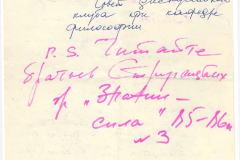 Совет дискуссионного
клуба при кафедре
философии
P.S. Читайте
братьев Стругацких
пр "Знание –
сила" 85-86гг
№3